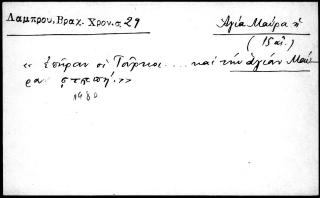 Λαμπρου, Βραχ. Χρον. σ. 29
Ἁγία Μαύρα ἡ
(15 αἰ.)
« ἐπῆραν οἱ Τοῦρκοι .... καὶ τὴν ἁγίαν Μαύ
ραν »
1480